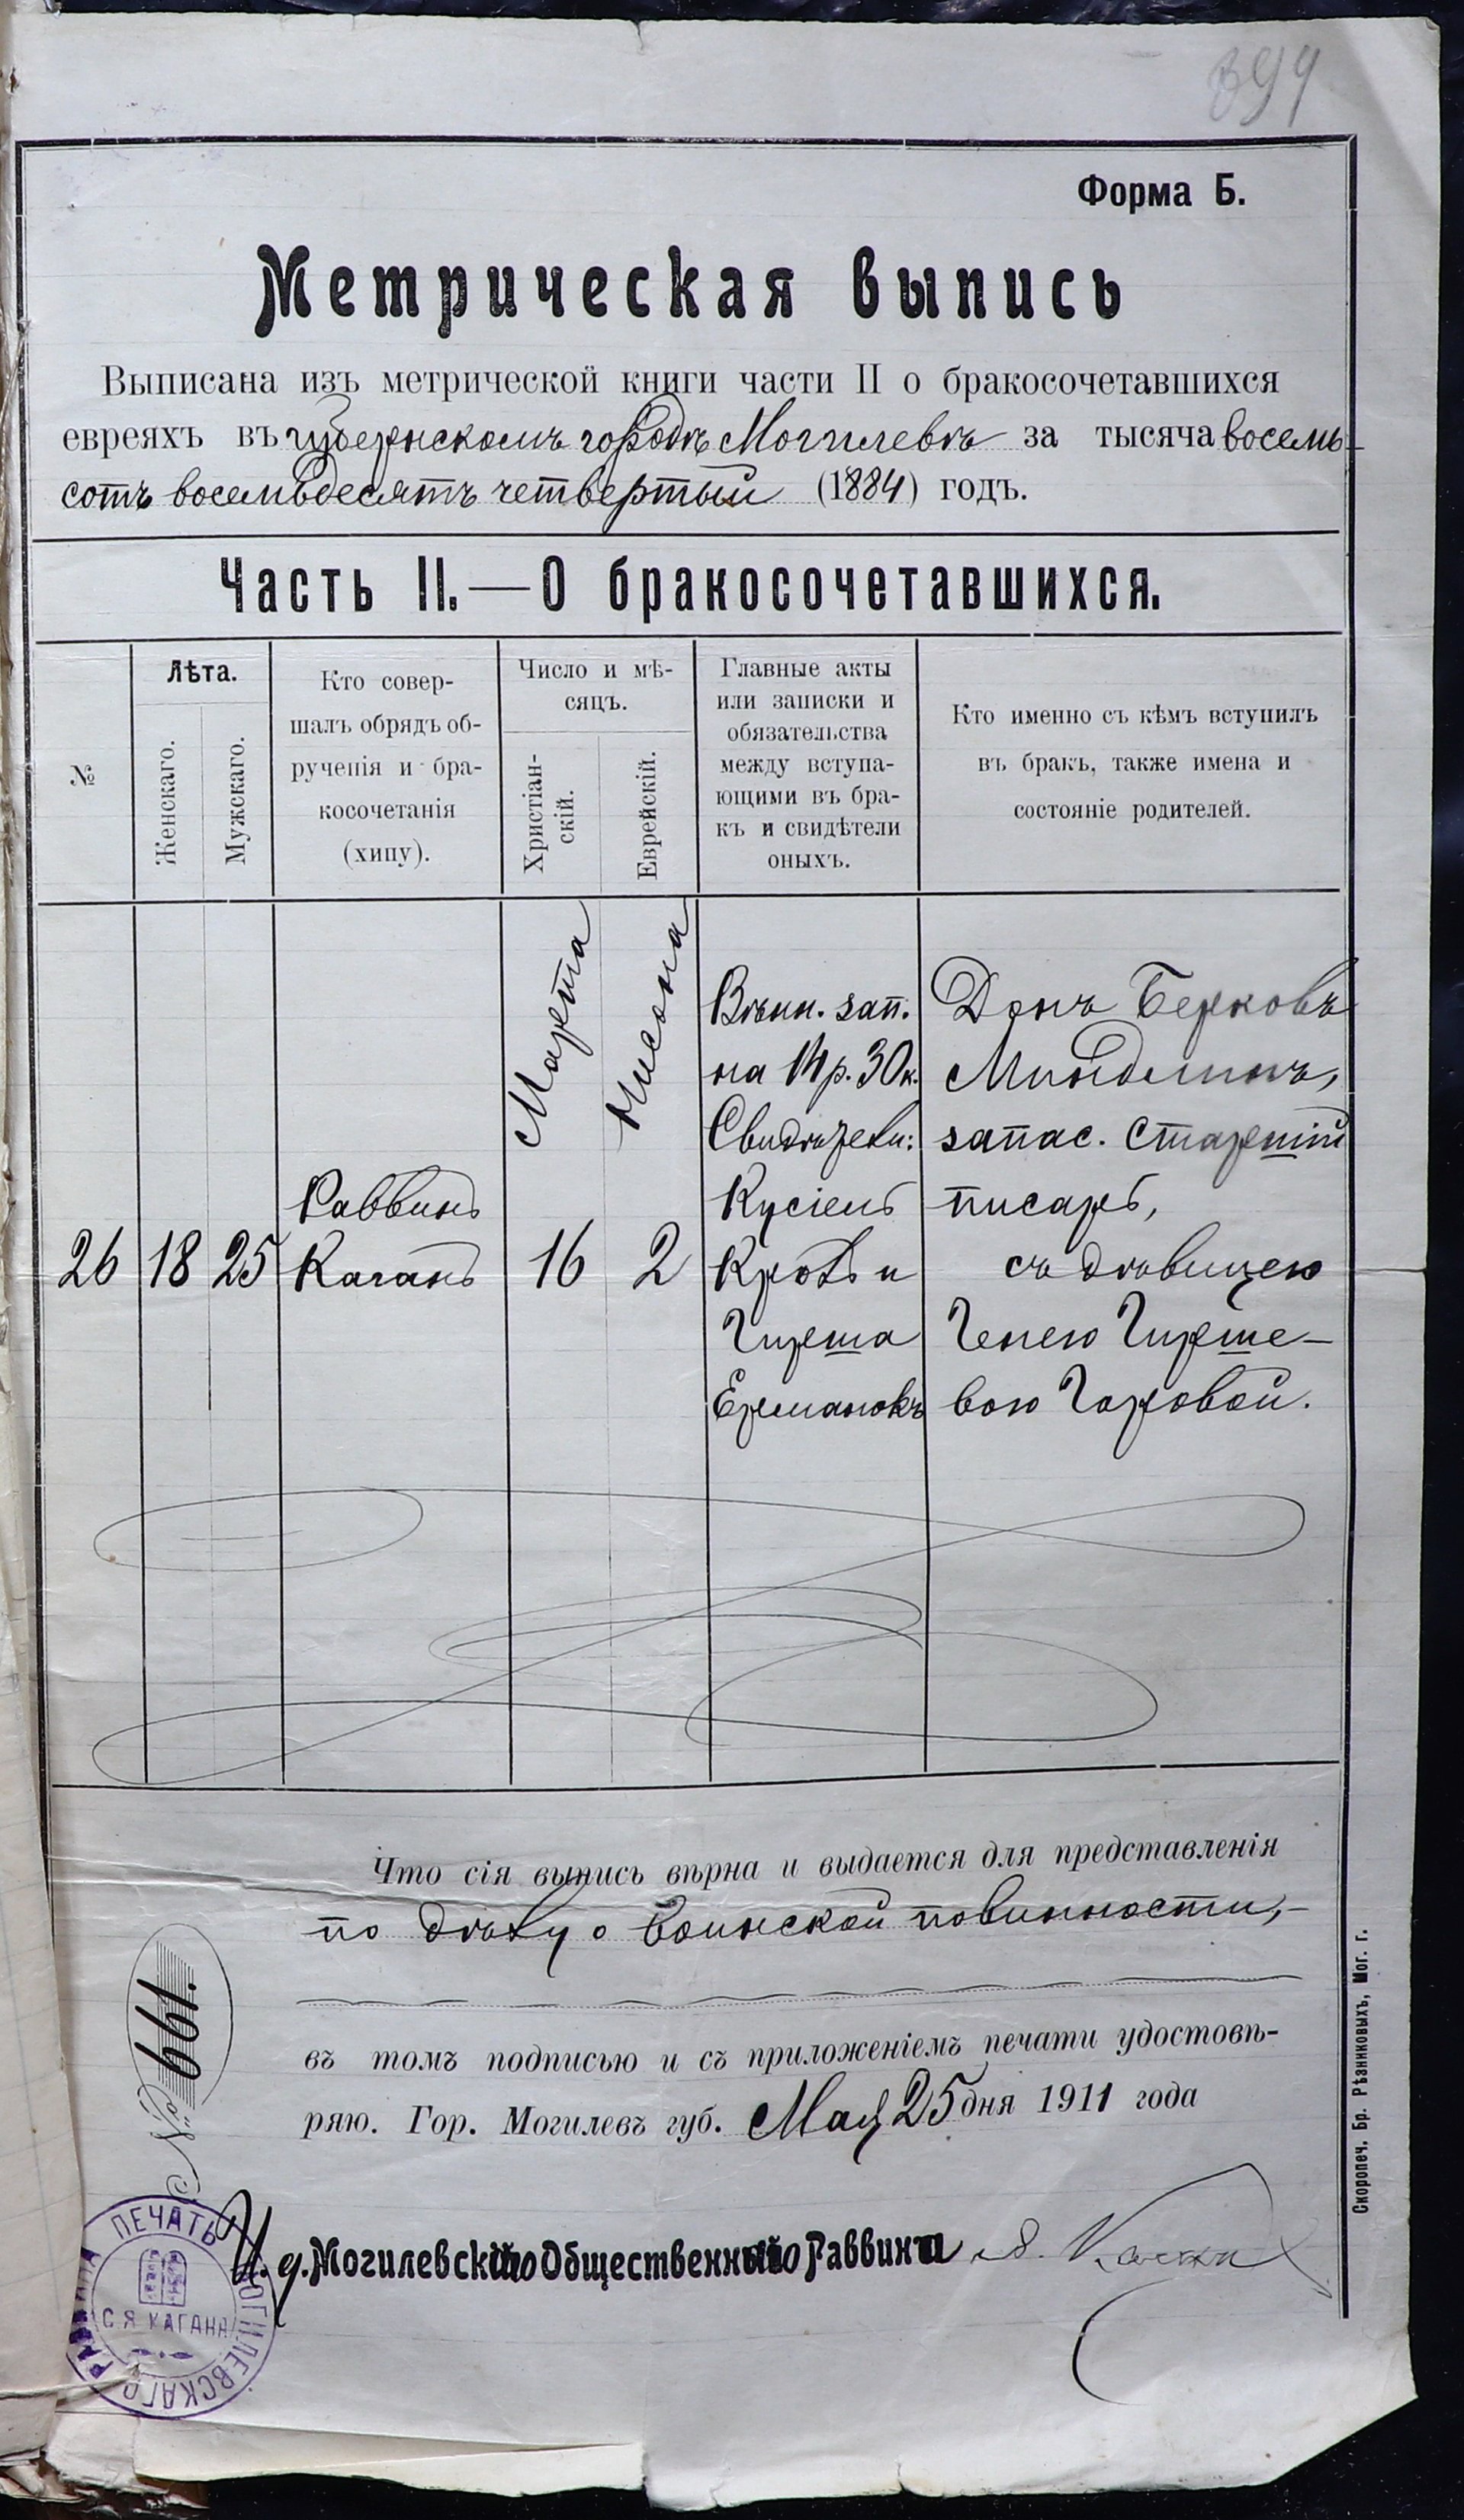 399
Форма Б.
Метрическая выпись
Выписана изъ метрической книги части II о бракосочетавшихся
евреяхъ въ губернскомъ городѣ Могилевѣ за тысяча восемь-
сотъ восемьдесятъ четвертый (1884) годъ.
Часть II.—О бракосочетавшихся.
№
Лѣта.
Женскаго.
Мужскаго.
Кто совер-
шалъ обрядъ об-
рученія и бра-
косочетанія
(хипу).
Число и мѣ-
сяцъ.
Христіан-
скій.
Еврейскій.
Главные акты
или записки и
обязательства
между вступа-
ющими въ бра-
къ и свидѣтели
оныхъ.
Кто именно съ кѣмъ вступилъ
въ бракъ, также имена и
состояніе родителей.
26
18
25
Раввинъ
Каганъ
Марта
16
Нисона
2
Вѣнч. зап.
на р. 30 к.
Свидѣтели:
Кусіель
Кротъ и
Гирша
Ерманокъ
Донъ Берковъ
Миндлинъ,
запас. старшій
писарь,
съ дѣвицею
Генею Гирше-
вою Горовой.
Что сія выпись вѣрна и выдается для представленія
по дѣлу о воинской повинности,-
въ томъ подписью и съ приложеніемъ печати удостовѣ-
ряю. Гор. Могилевъ губ. Мая 25 дня 1911 года
№ 661.
И. д. Могилевскаго Общественнаго Раввина
ПЕЧАТЬ МОГИЛЕВСКАГО РАВВИНА
С Я КАГАНА
Скоропеч. Бр. Рѣзниковыхъ, Мог. г.